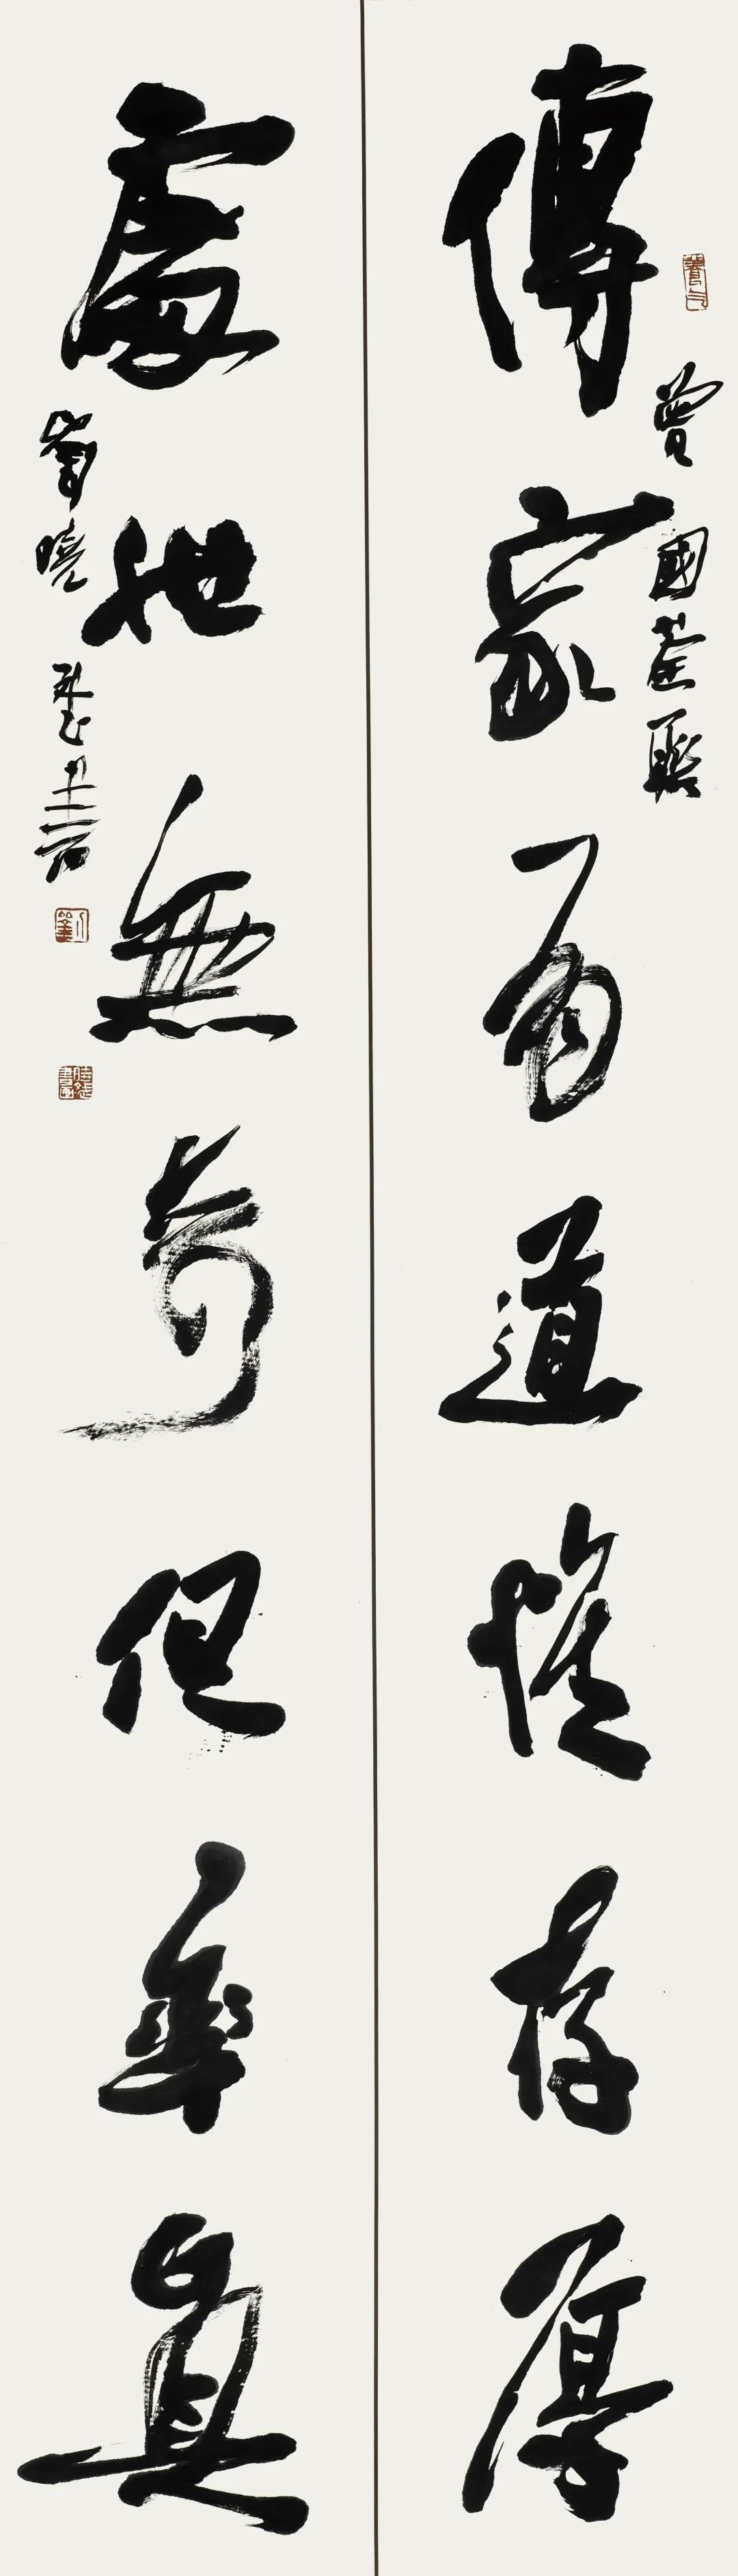 傳家有道惟存厚
曾國荃聯
處世無奇但率真
劉曉